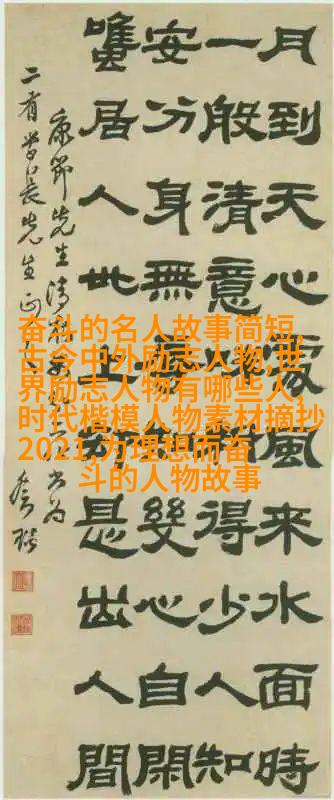 月到天心處風來水面時
一般清意味料得少人知
安分身無辱 幾心自閑
雖居人世上卻是出人間
康節先生清
二有學長先生正
奋斗的名人故事简短,
古今中外励志人物,世
界励志人物有哪些人,
时代楷模人物素材摘抄
2021,为理想而奋
斗的人物故事